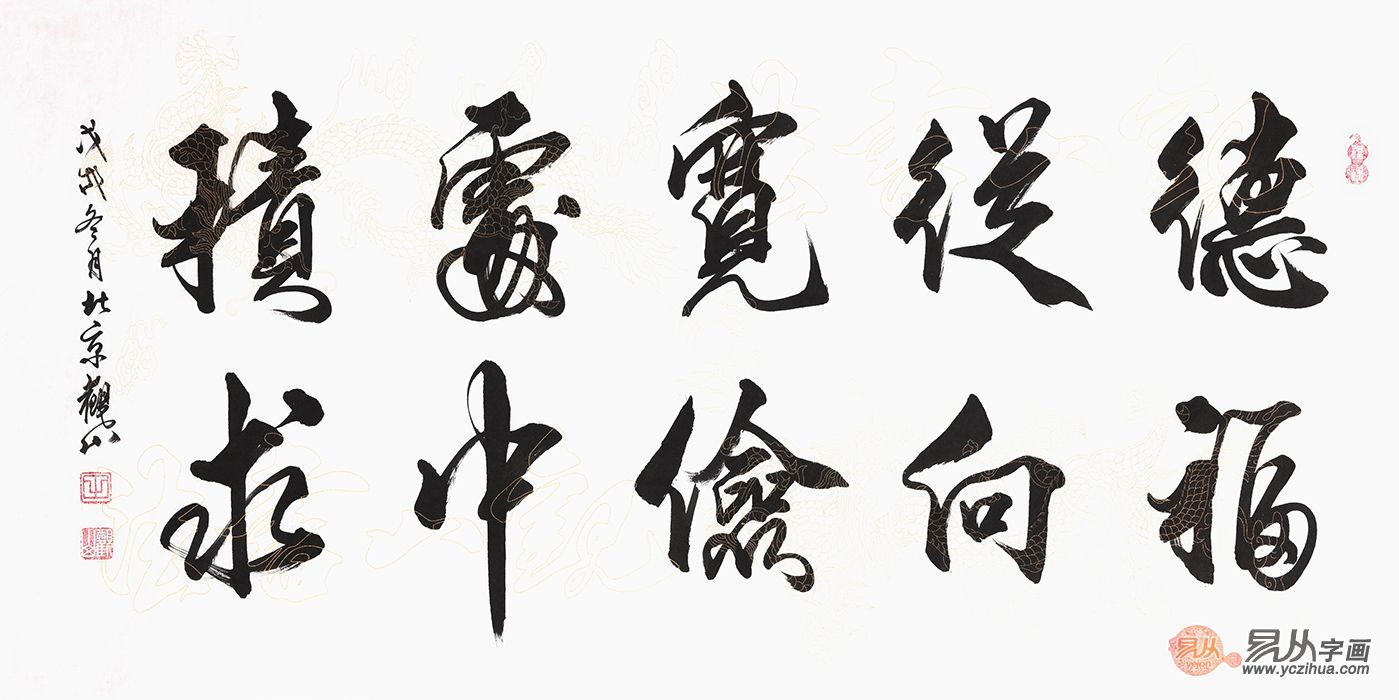 德從寬處積
福向儉中求
戊戌冬月北京觀山
易从字画
www.yczihua.com